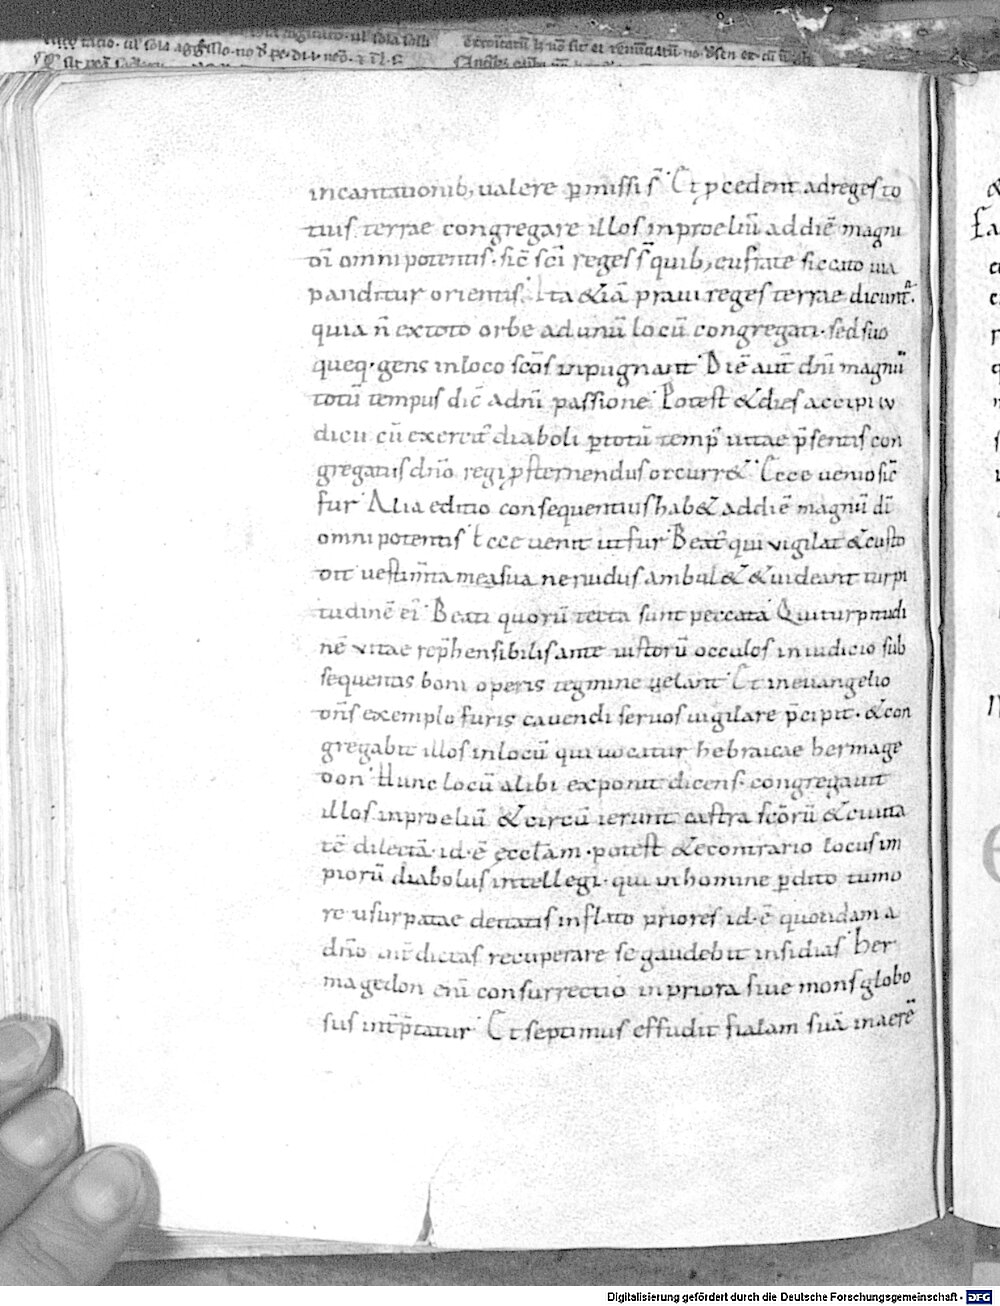 incantationib; ualere ꝑmissi s̄ Et ꝓcedent ad reges to
tius terrae congregare illos in proeliū ad diē magni
dī omnipotentis. sic̄ sc̄i reges s̄ quib; eufrate siccato uia
panditur orientis. Ita & iā praui reges terrae dicunt᷑.
quia n̄ ex toto orbe ad unū locū congregati. sed suo
queq. gens in loco sc̄os inpugnant Diē aut̄ dn̄i magnū
totū tempus dic̄ ad dn̄i passione Potest & dies accipi iu
dicii cū exercit᷑ diaboli ꝑ totū temp᷑ uitae p̄sentis con
gregatus dn̄o regi ꝓsternendus occurr& Ecce uenio sic̄
fur Alia editio consequentius hab& ad diē magnū dī
omnipotentis Ecce uenit ut fur Beat᷑ qui vigilat & custo
dit uestim̄ta mea sua ne nudus ambul& & uideant turpi
tudinē ei᷑ Beati quorū tecta sunt peccata Qui turpitudi
nē vitae rep̄hensibilis ante iustorū occulos in iudicio sub
sequentis boni operis tegmine uelant Et in euangelio
dn̄s exemplo furis cauendi seruos uigilare p̄cipit. & con
gregabit illos in locū qui uocatur hebraicae hermage
don Hunc locū alibi exponit dicens. congregauit
illos in proeliū & circū ierunt castra sc̄orū & ciuita
tē dilectā. id. ē ęcclam. potest & econtrario locus im
piorū diabolus intellegi. qui in homine ꝑdito tumo
re usurpatae deitatis inflato priores id. ē quondam a
dn̄o int̄dictas recuperare se gaudebit insidias her
magedon eni᷑ consurrectio in priora siue mons globo
sus int̄p̄tatur Et septimus effudit fialam suā in aerē
Digitalisierung gefördert durch die Deutsche Forschungsgemeinschaft - DFG